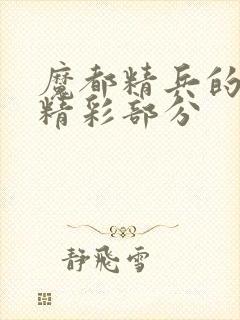 魔都精兵的
精彩部分
静飛雪